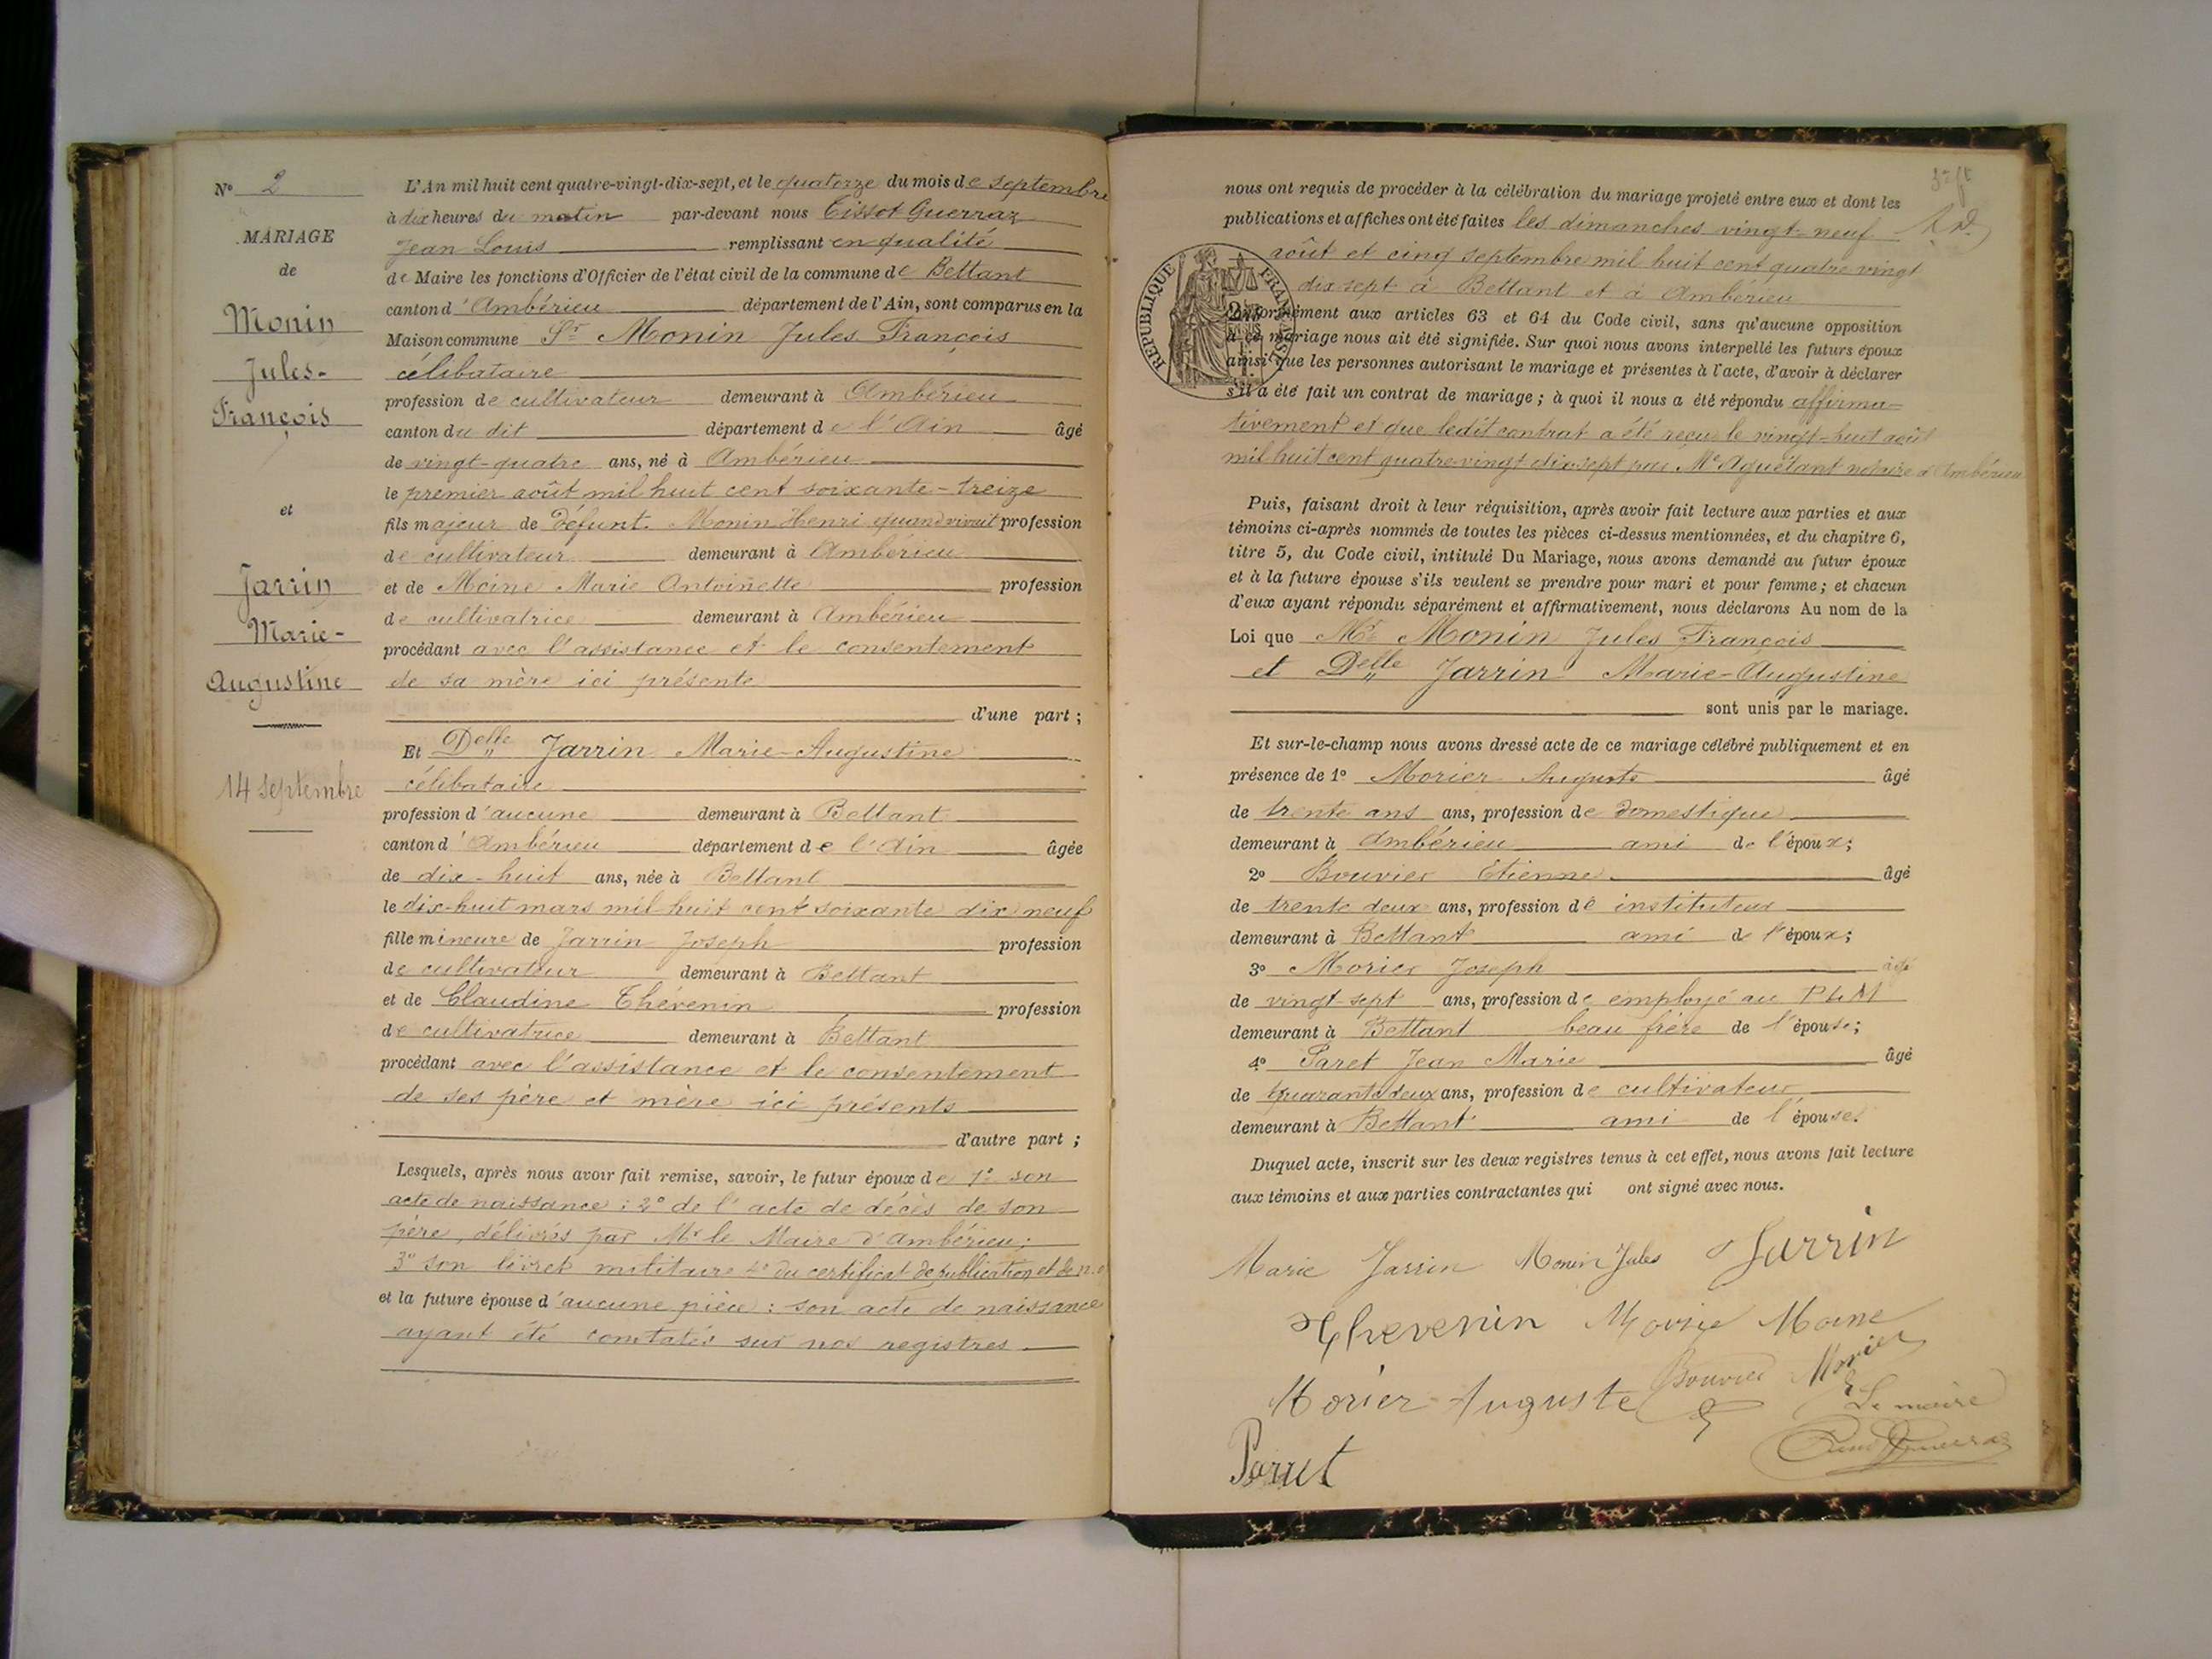 N° 2
MARIAGE
de
Monin
Jules-
François
et
Jarrin
Marie-
Augustine
14 septembre
L'An mil huit cent quatre-vingt-dix-sept, et le quatorze du mois de septembre
à dix heures du matin par-devant nous Tissot Guerraz
Jean Louis remplissant en qualité
de Maire les fonctions d'Officier de l'état civil de la commune de Bettant
canton d'Ambérieu département de l'Ain, sont comparus en la
Maison commune Sr Monin Jules François
célibataire
profession de cultivateur demeurant à Ambérieu
canton du dit département de l'Ain âgé
de vingt-quatre ans, né à Ambérieu
le premier août mil huit cent soixante-treize
fils majeur de défunt Monin Henri quand vivait profession
de cultivateur demeurant à Ambérieu
et de Moine Marie Antoinette profession
de cultivatrice demeurant à Ambérieu
procédant avec l'assistance et le consentement
de sa mère ici présente
d'une part ;
Et Delle Jarrin Marie-Augustine
célibataire
profession d'aucune demeurant à Bettant
canton d'Ambérieu département de l'Ain âgée
de dix-huit ans, née à Bettant
le dix-huit mars mil huit cent soixante dix neuf
fille mineure de Jarrin Joseph profession
de cultivateur demeurant à Bettant
et de Claudine Thévenin profession
de cultivatrice demeurant à Bettant
procédant avec l'assistance et le consentement
de ses père et mère ici présents
d'autre part ;
Lesquels, après nous avoir fait remise, savoir, le futur époux de 1° son
acte de naissance : 2° de l'acte de décès de son
père, délivrés par Mr le Maire d'Ambérieu ;
3° son livret militaire 4° du certificat de publication et de n.o
et la future épouse d'aucune pièce : son acte de naissance
ayant été constatés sur nos registres
nous ont requis de procéder à la célébration du mariage projeté entre eux et dont les
publications et affiches ont été faites les dimanches vingt-neuf
août et cinq septembre mil huit cent quatre vingt
dix sept à Bettant et à Ambérieu
RÉPUBLIQUE FRANÇAISE
conformément aux articles 63 et 64 du Code civil, sans qu'aucune opposition
à ce mariage nous ait été signifiée. Sur quoi nous avons interpellé les futurs époux
ainsi que les personnes autorisant le mariage et présentes à l'acte, d'avoir à déclarer
s'il a été fait un contrat de mariage ; à quoi il nous a été répondu affirma-
tivement et que ledit contrat a été reçu le vingt-huit août
mil huit cent quatre-vingt dix sept par Me Aguétant notaire à Ambérieu
Puis, faisant droit à leur réquisition, après avoir fait lecture aux parties et aux
témoins ci-après nommés de toutes les pièces ci-dessus mentionnées, et du chapitre 6,
titre 5, du Code civil, intitulé Du Mariage, nous avons demandé au futur époux
et à la future épouse s'ils veulent se prendre pour mari et pour femme ; et chacun
d'eux ayant répondu séparément et affirmativement, nous déclarons Au nom de la
Loi que Mr Monin Jules François
et Delle Jarrin Marie-Augustine
sont unis par le mariage.
Et sur-le-champ nous avons dressé acte de ce mariage célébré publiquement et en
présence de 1° Morier Auguste âgé
de trente ans ans, profession de domestique
demeurant à Ambérieu ami de l'époux ;
2° Bouvier Etienne âgé
de trente deux ans, profession de instituteur
demeurant à Bettant ami de l'époux ;
3° Morier Joseph âgé
de vingt sept ans, profession de employé au PLM
demeurant à Bettant beau frère de l'épouse ;
4° Paret Jean Marie âgé
de quarante deux ans, profession de cultivateur
demeurant à Bettant ami de l'épouse.
Duquel acte, inscrit sur les deux registres tenus à cet effet, nous avons fait lecture
aux témoins et aux parties contractantes qui ont signé avec nous.
Marie Jarrin Monin Jules Jarrin
Thevenin Marie Moine
Morier Auguste Bouvier Morier
Le maire
Parret